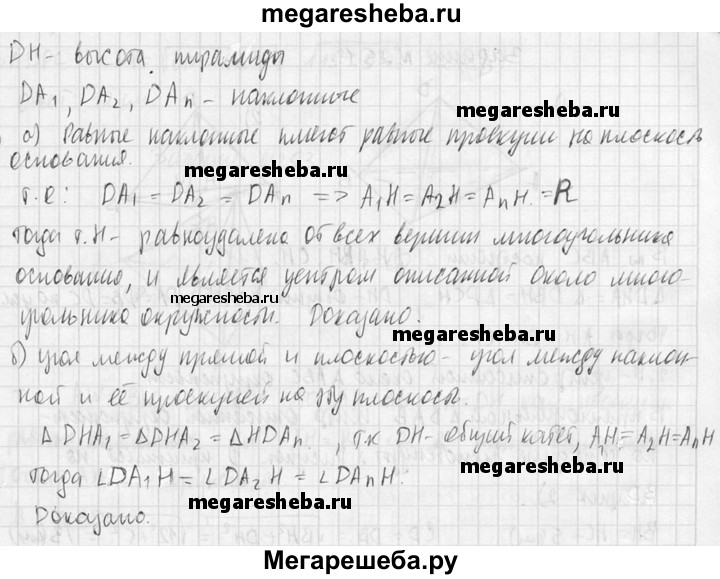 megaresheba.ru
DH - высота пирамиды
DA₁, DA₂, DAn - наклонные
megaresheba.ru
а) Равные наклонные имеют равные проекции на плоскость
основания.
megaresheba.ru
т.е: DA₁ = DA₂ = DAn => A₁H = A₂H = AnH = R
тогда т. H - равноудалена от всех вершин многоугольника
основание, и является центром описанной около много-
megaresheba.ru
угольника окружности. Доказано.
megaresheba.ru
б) угол между прямой и плоскостью - угол между наклон-
ной и её проекцией на эту плоскость.
△ DHA₁ = △DHA₂ = △HDAn, т.к DH - общий катет, A₁H = A₂H = AnH
megaresheba.ru
тогда ∠DA₁H = ∠DA₂H = ∠DAnH
megaresheba.ru
Доказано.
Мегарешеба.ру